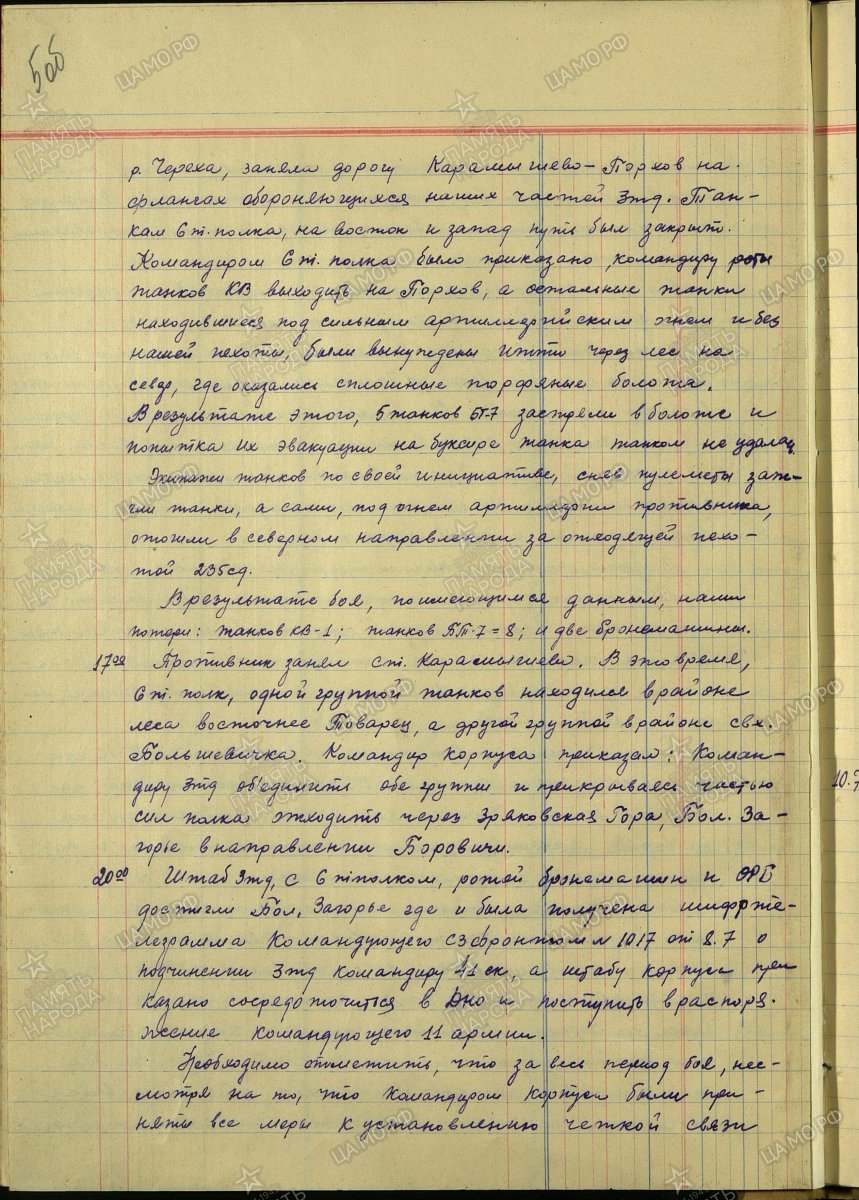 506
р. Череха, заняла дорогу Карамышево – Порхов на
флангах обороняющихся наших частей 3тд. Тан-
кам 6 т. полка, на восток и запад путь был закрыт.
Командиром 6 т. полка было приказано, командиру роты
танков КВ выходить на Порхов, а остальные танки
находившиеся под сильным артиллерийским огнем и без
нашей пехоты, были вынуждены итти через лес на
север, где оказались сплошные торфяные болота.
В результате этого, 5 танков БТ-7 застряли в болоте и
попытка их эвакуации на буксире танка танком не удалась.
Экипажи танков по своей инициативе, сняв пулеметы заж-
гли танки, а сами, под огнем артиллерии противника,
отошли в северном направлении за отходящей пехо-
той 235сд.
В результате боя, по имеющимся данным, наши
потери: танков КВ-1; танков БТ-7 = 8; и две бронемашины.
17 00 Противник занял ст. Карамышево. В это время,
6 т. полк, одной группой танков находился в районе
леса восточнее Товарец, а другой группой в районе свх.
Большевичка. Командир корпуса приказал: Коман-
диру 3тд об'единить обе группы и прикрываясь частью
сил полка отходить через Зряковская Гора, Бол. За-
горье в направлении Боровичи.
10.7
20 00 Штаб 3тд, с 6 тполком, ротой бронемашин и ОРБ
достигли Бол. Загорье где и была получена шифрте-
леграмма Командующего СЗ фронтом № 1017 от 8.7 о
подчинении 3тд командиру 41 ск, а штабу корпуса при
казано сосредоточиться в Дно и поступить в распоря-
жение командующего 11 армии.
Необходимо отметить, что за весь период боя, нес-
мотря на то, что командиром корпуса были при-
няты все меры к установлению четкой связи
ПАМЯТЬ НАРОДА
ЦАМО.РФ